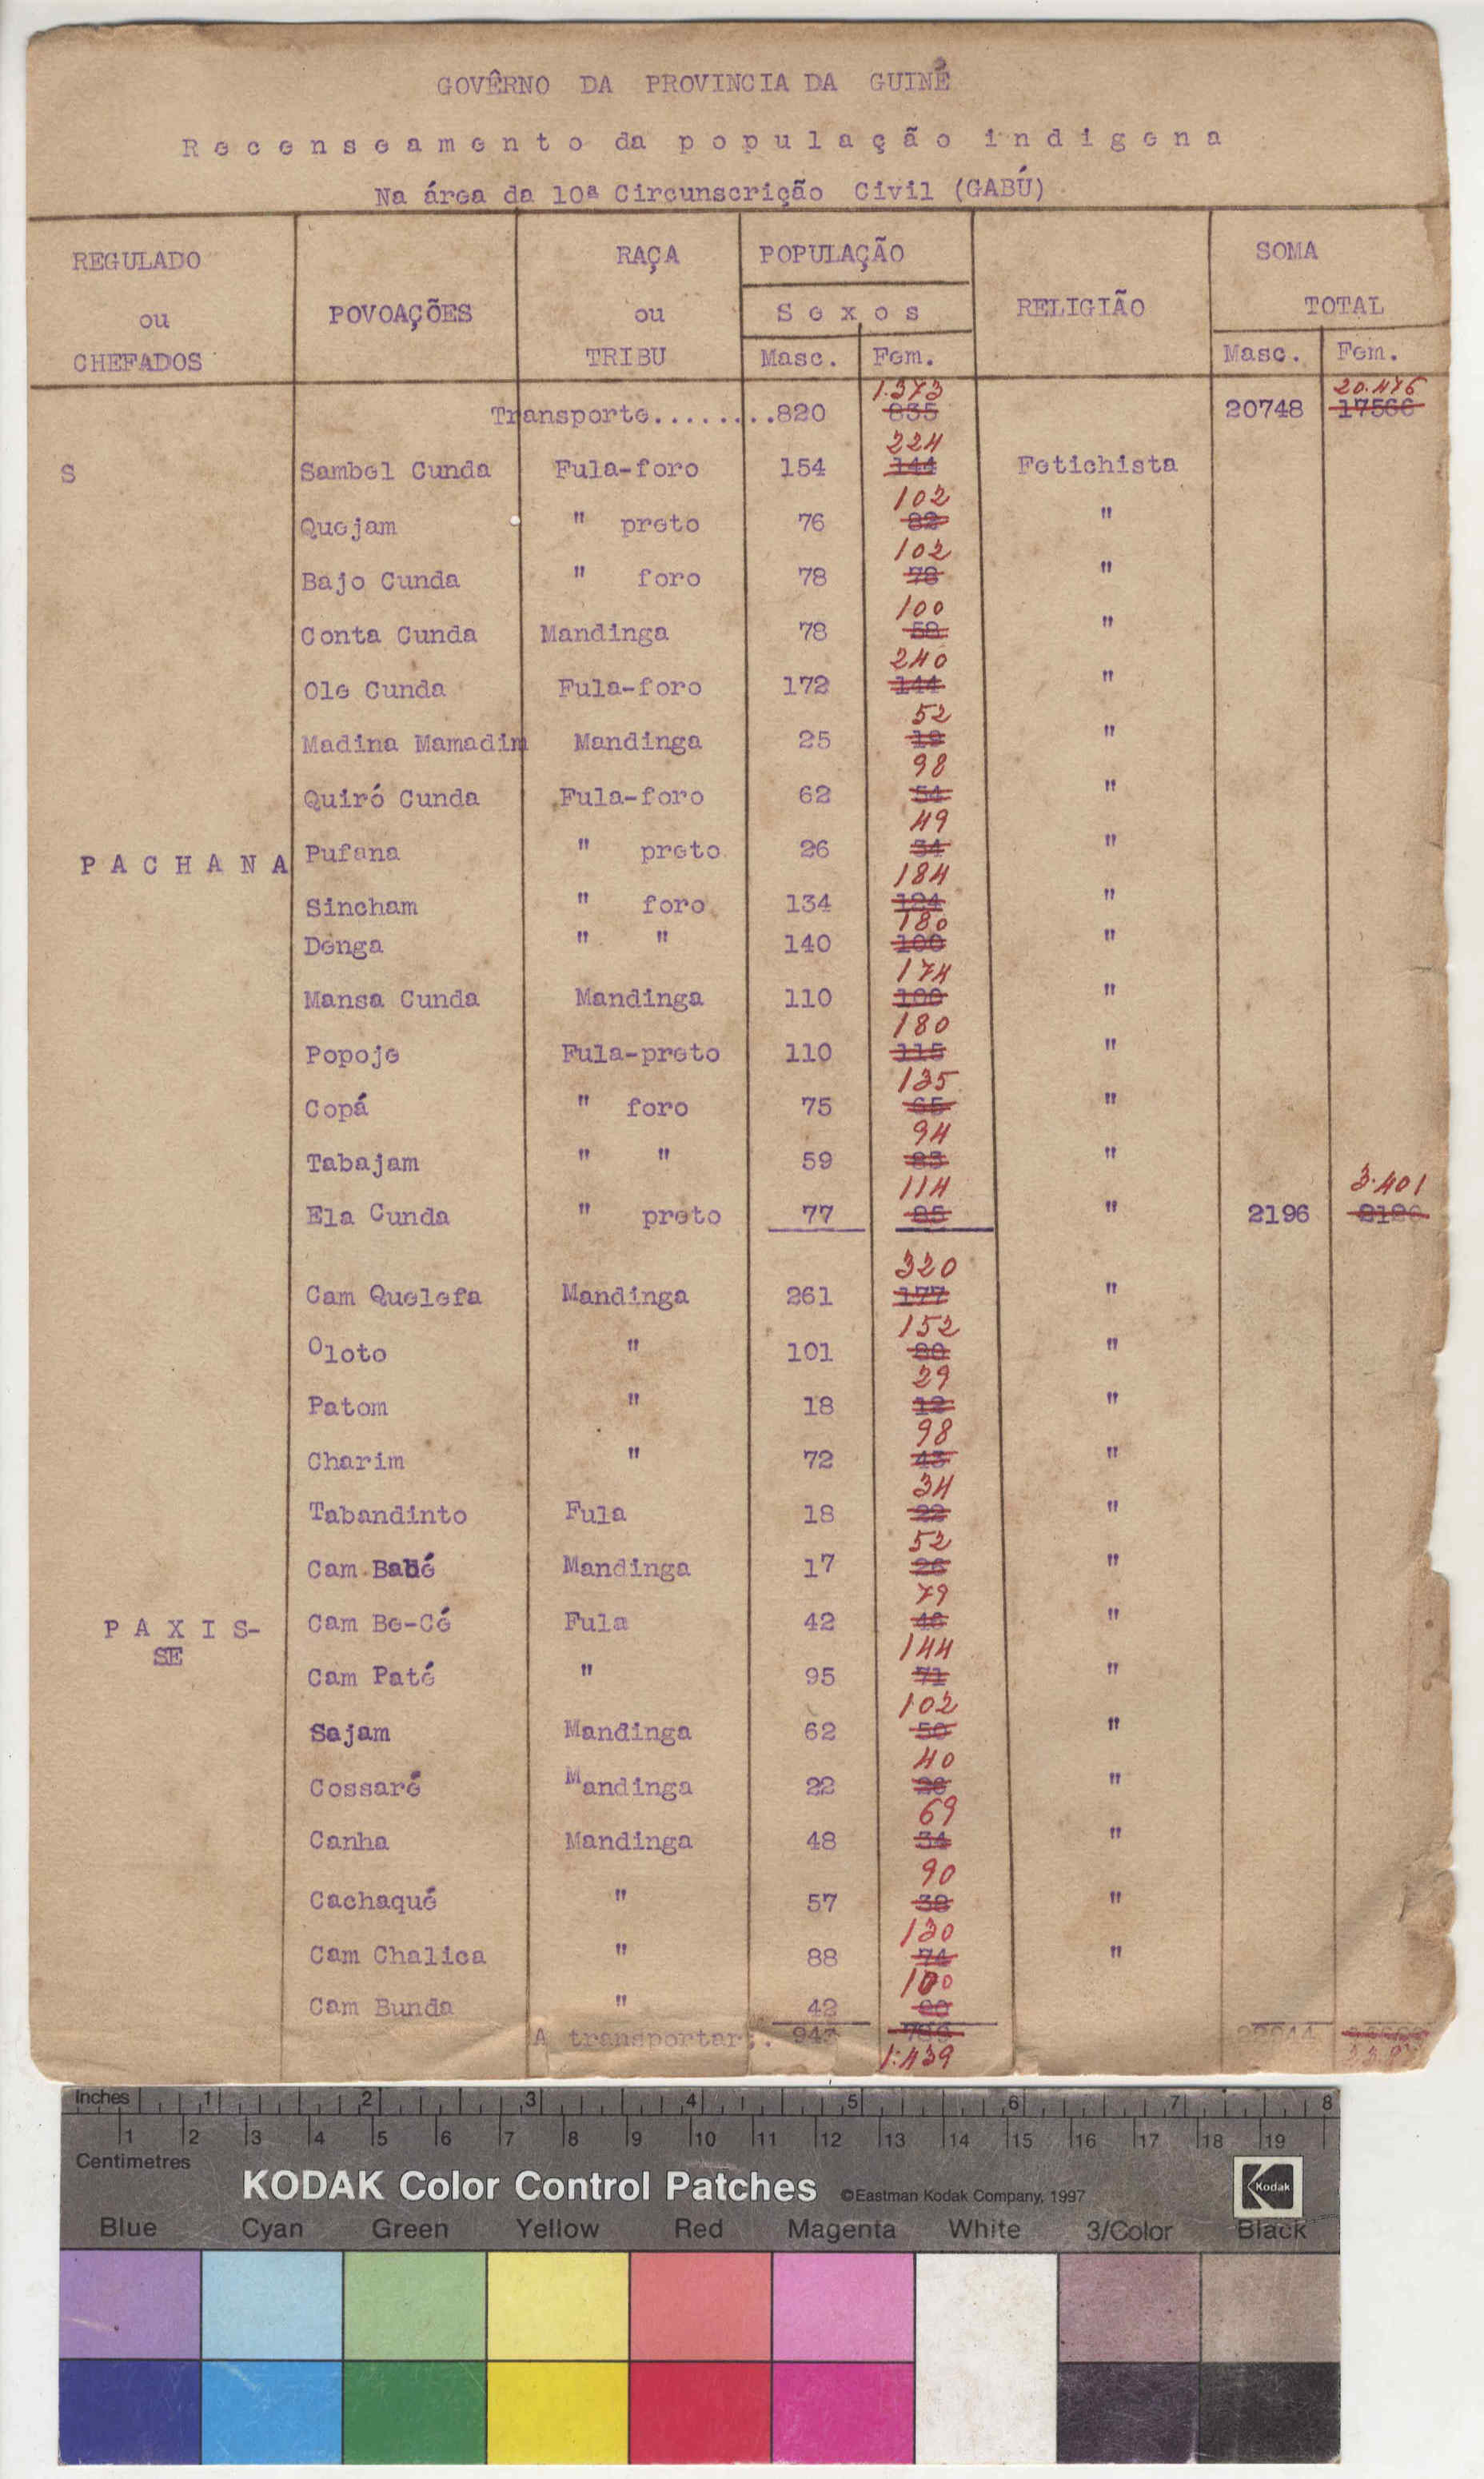 GOVÊRNO DA PROVINCIA DA GUINÉ
Recenseamento da população indigena
Na área da 10ª Circunscrição Civil (GABÚ)
REGULADO ou CHEFADOS POVOAÇÕES RAÇA ou TRIBU POPULAÇÃO Sexos Masc. Fem. RELIGIÃO SOMA TOTAL Masc. Fem.
1.373 20.476
Transporte.........820 835 20748 17566
224
S Sambel Cunda Fula-foro 154 144 Fetichista
102
Quejam " preto 76 82 "
102
Bajo Cunda " foro 78 78 "
100
Conta Cunda Mandinga 78 58 "
240
Ole Cunda Fula-foro 172 144 "
52
Madina Mamadim Mandinga 25 19 "
98
Quiró Cunda Fula-foro 62 54 "
49
PACHANA Pufana " preto 26 34 "
184
Sincham " foro 134 124 "
180
Denga " " 140 100 "
174
Mansa Cunda Mandinga 110 100 "
180
Popoje Fula-preto 110 115 "
135
Copá " foro 75 65 "
94
Tabajam " " 59 83 "
114 3.401
Ela Cunda " preto 77 85 " 2196 2126
320
Cam Quelefa Mandinga 261 177 "
152
Oloto " 101 80 "
29
Patom " 18 12 "
98
Charim " 72 43 "
34
Tabandinto Fula 18 22 "
52
Cam Babé Mandinga 17 26 "
79
PAXIS-
SE
Cam Be-Cé Fula 42 46 "
144
Cam Paté " 95 71 "
102
Sajam Mandinga 62 50 "
40
Cossaré Mandinga 22 26 "
69
Canha Mandinga 48 34 "
90
Cachaqué " 57 38 "
130
Cam Chalica " 88 74 "
100
Cam Bunda " 42
A transportar.. 943
1.439
Inches 1 2 3 4 5 6 7 8
1 2 3 4 5 6 7 8 9 10 11 12 13 14 15 16 17 18 19
Centimetres
KODAK Color Control Patches ©Eastman Kodak Company, 1997 Kodak
Blue Cyan Green Yellow Red Magenta White 3/Color Black